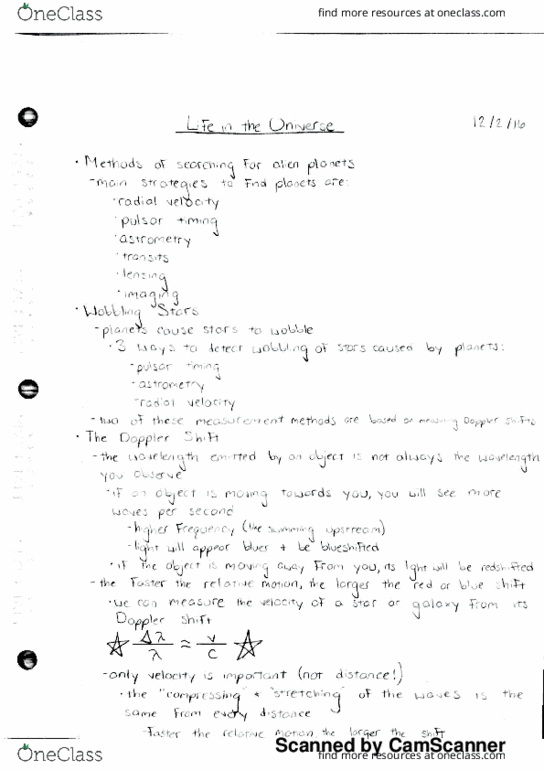 OneClass
find more resources at oneclass.com
Life in the Universe
12/2/16
• Methods of searching for alien planets
- main strategies to find planets are:
• radial velocity
• pulsar timing
• astrometry
• transits
• lensing
• imaging
• Wobbling Stars
- planets cause stars to wobble
• 3 ways to detect wobbling of stars caused by planets:
- pulsar timing
- astrometry
- radial velocity
- two of these measurement methods are based on measuring Doppler shifts
• The Doppler Shift
- the wavelength emitted by an object is not always the wavelength
you observe
• if an object is moving towards you, you will see more
waves per second
- higher frequency (like swimming upstream)
- light will appear bluer + be blueshifted
• if the object is moving away from you, its light will be redshifted
- the faster the relative motion, the larger the red or blue shift
• we can measure the velocity of a star or galaxy from its
Doppler shift
☆ Δλ/λ ≈ v/c ☆
- only velocity is important (not distance!)
• the "compressing" + "stretching" of the waves is the
same from every distance
- faster the relative motion the larger the shift
Scanned by CamScanner
OneClass
find more resources at oneclass.com